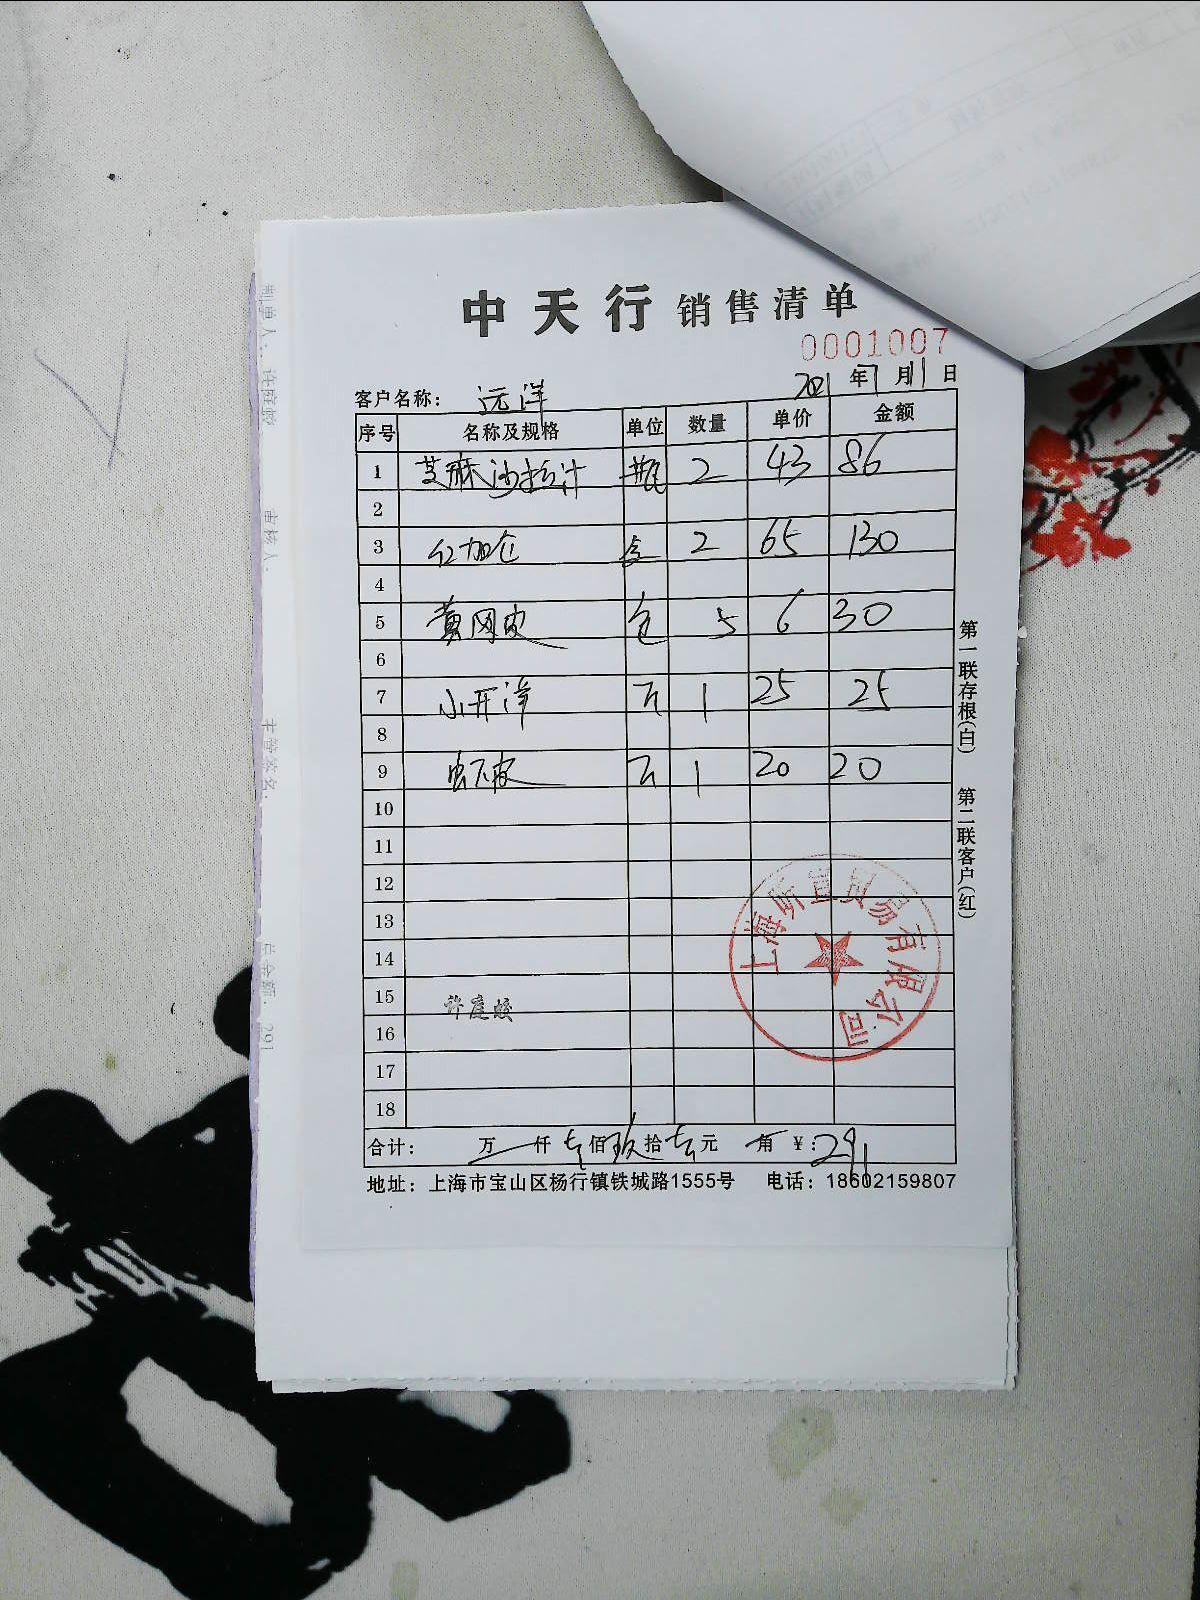 中天行 销售清单
0001007
客户名称: 远洋 2021年7月11日
序号 名称及规格 单位 数量 单价 金额
1 芝麻沙拉汁 瓶 2 43 86
2
3 红加仑 盒 2 65 130
4
5 黄冈皮 包 5 6 30
6
7 小开洋 斤 1 25 25
8
9 虾皮 斤 1 20 20
10
11
12
13
14
15 许庭蛟
16
17
18
合计: 万 仟 佰玖拾 元 角 ¥:291
地址: 上海市宝山区杨行镇铁城路1555号 电话: 18602159807
第一联存根(白) 第二联客户(红)
上海昕宜贸易有限公司
制单人: 许庭蛟 审核人: 主管签名: 总金额: 291